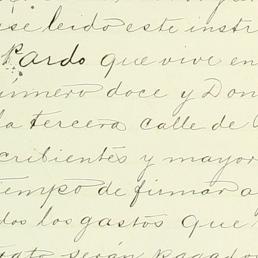 se leido este instr
Pardo que vive en
número doce y Don
la tercera calle de
cribientes y mayor
tiempo de firmar a
dos los gastos que
rato serán pagado